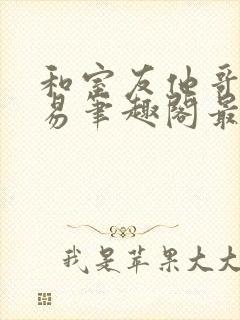 和室友他哥
易笔趣阁最
我是苹果大大